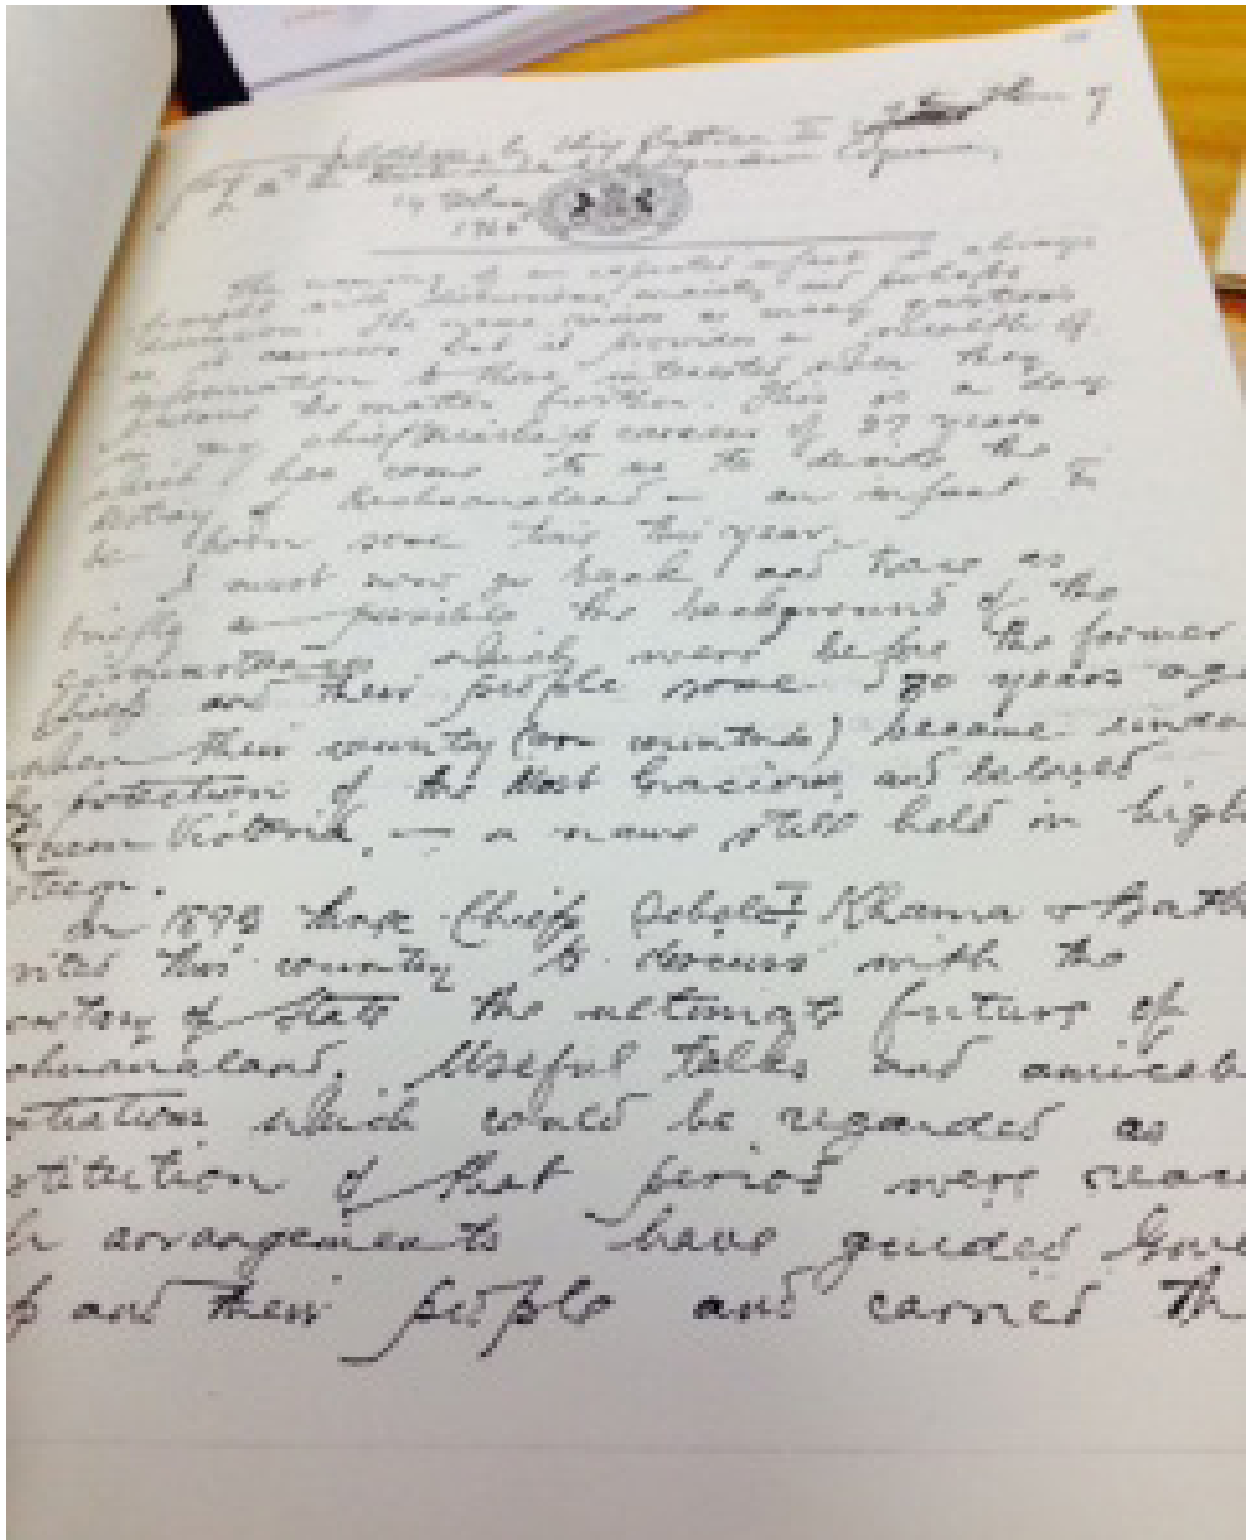 by Chief Bathoen II
Independence Conference,
14 February
1966
The naming of an expected infant is always
brought with discussions, anxiety and perhaps
The name raises as many questions
as it answers but it provides a wealth of
information to those interested when they
pursue the matter further. This is a day
in my chieftainship career of 37 years
which has come to us to decide the
destiny of Bechuanaland — an infant to
be born some time this year.
I must now go back and trace as
briefly as possible the background of the
circumstances which were before the former
Chiefs and their people some 80 years ago
when their country (our countries) became under
the protection of the Most Gracious and beloved
Queen Victoria, — a name still held in high
esteem.
In 1895 three Chiefs Sebele I, Khama & Batho
this country to discuss with the
of State the ultimate future of
Useful talks and
which could be regarded as
of that period were
arrangements have guided
and their people and carried